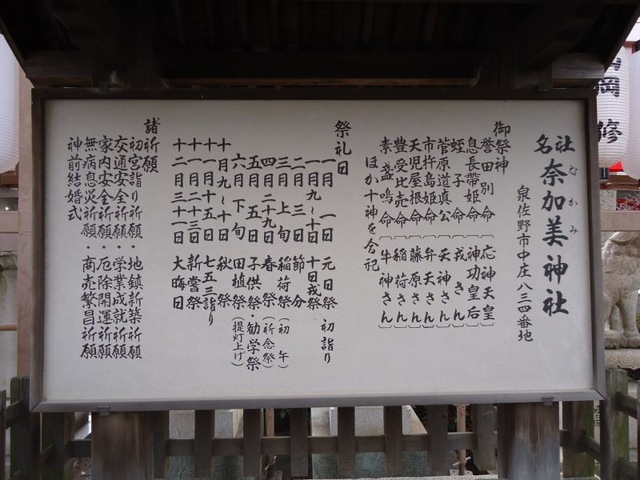 名社 奈加美神社
なかみ
泉佐野市中庄八三四番地
御祭神
誉田別命 (応神天皇)
息長帯姫命 (神功皇后)
蛭子命 (戎さん)
菅原道真公 (天神さん)
市杵島姫命 (弁天さん)
天児屋根命 (藤原さん)
豊受比売命 (稲荷さん)
素盞鳴命 (牛神さん)
ほか十神を合祀
祭礼日
一月一日 元日祭 初詣り
一月九〜十日 十日戎祭
二月三日 節分
三月上旬 稲荷祭 (初午)
四月二十九日 春祭 (祈念祭)
五月五日 子供祭・勧学祭
六月下旬 田植祭 (提灯上げ)
十月九〜十日 秋祭
十一月十五日 七五三詣り
十二月三日 新嘗祭
十二月三十一日 大晦日
諸祈願
初宮詣り祈願・地鎮新築祈願
交通安全祈願・学業成就祈願
家内安全祈願・厄除開運祈願
無病息災祈願・商売繁昌祈願
神前結婚式
岡修